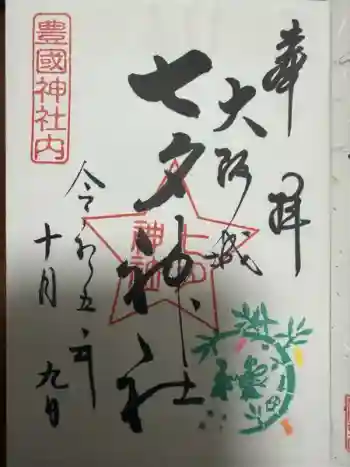 奉拝
大阪城
七夕神社
豊國神社内
令和五年
十月九日
七夕
神社